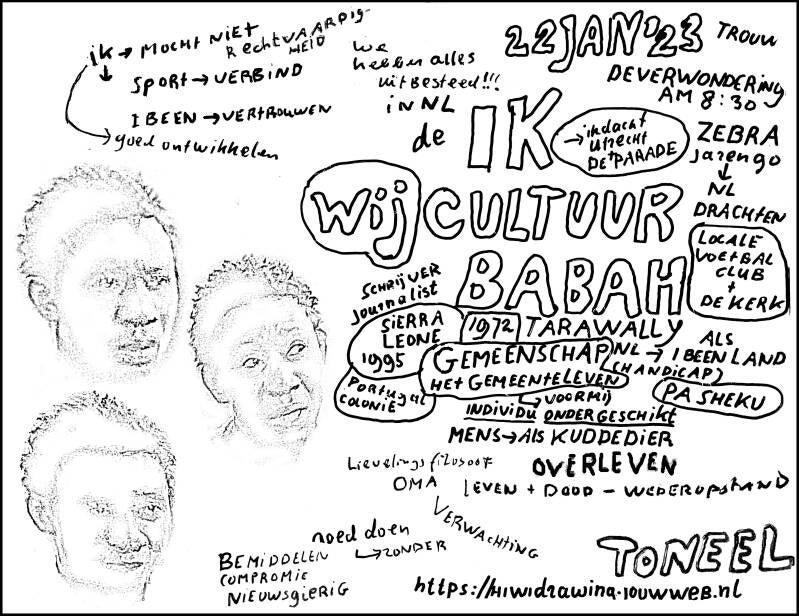 ik → MOCHT NIET
RECHTVAARDIG-
HEID
SPORT → VERBIND
1 BEEN → VERTROUWEN
goed ontwikkelen
We
hebben alles
uitbesteed!!!
in NL
22 JAN '23
TROUW
DEVERWONDERING
AM 8:30
de IK
→ ik dacht
UTRECHT
DE PARADE
ZEBRA
Jarengo
↓
NL
DRACHTEN
WIJ CULTUUR
LOCALE
VOETBAL
CLUB
+
DE KERK
BABAH
SCHRIJVER
Journalist
1972 TARAWALLY
SIERRA
LEONE
1995
PORTUGAL
COLONIE
GEMEENSCHAP
HET GEMEENTELEVEN
NL → ALS
1 BEEN LAND
(HANDICAP)
PA SHEKU
↳ VOORMIJ
INDIVIDU ONDERGESCHIKT
MENS → ALS KUDDEDIER
Lievelingsfilosoof
OMA
OVERLEVEN
LEVEN + DOOD - WEDEROPSTAND
VERWACHTING
noed doen
↳ ZONDER
BEMIDDELEN
COMPROMIE
NIEUWSGIERIG
TONEEL
https://hiwidrawing.jouwweb.nl